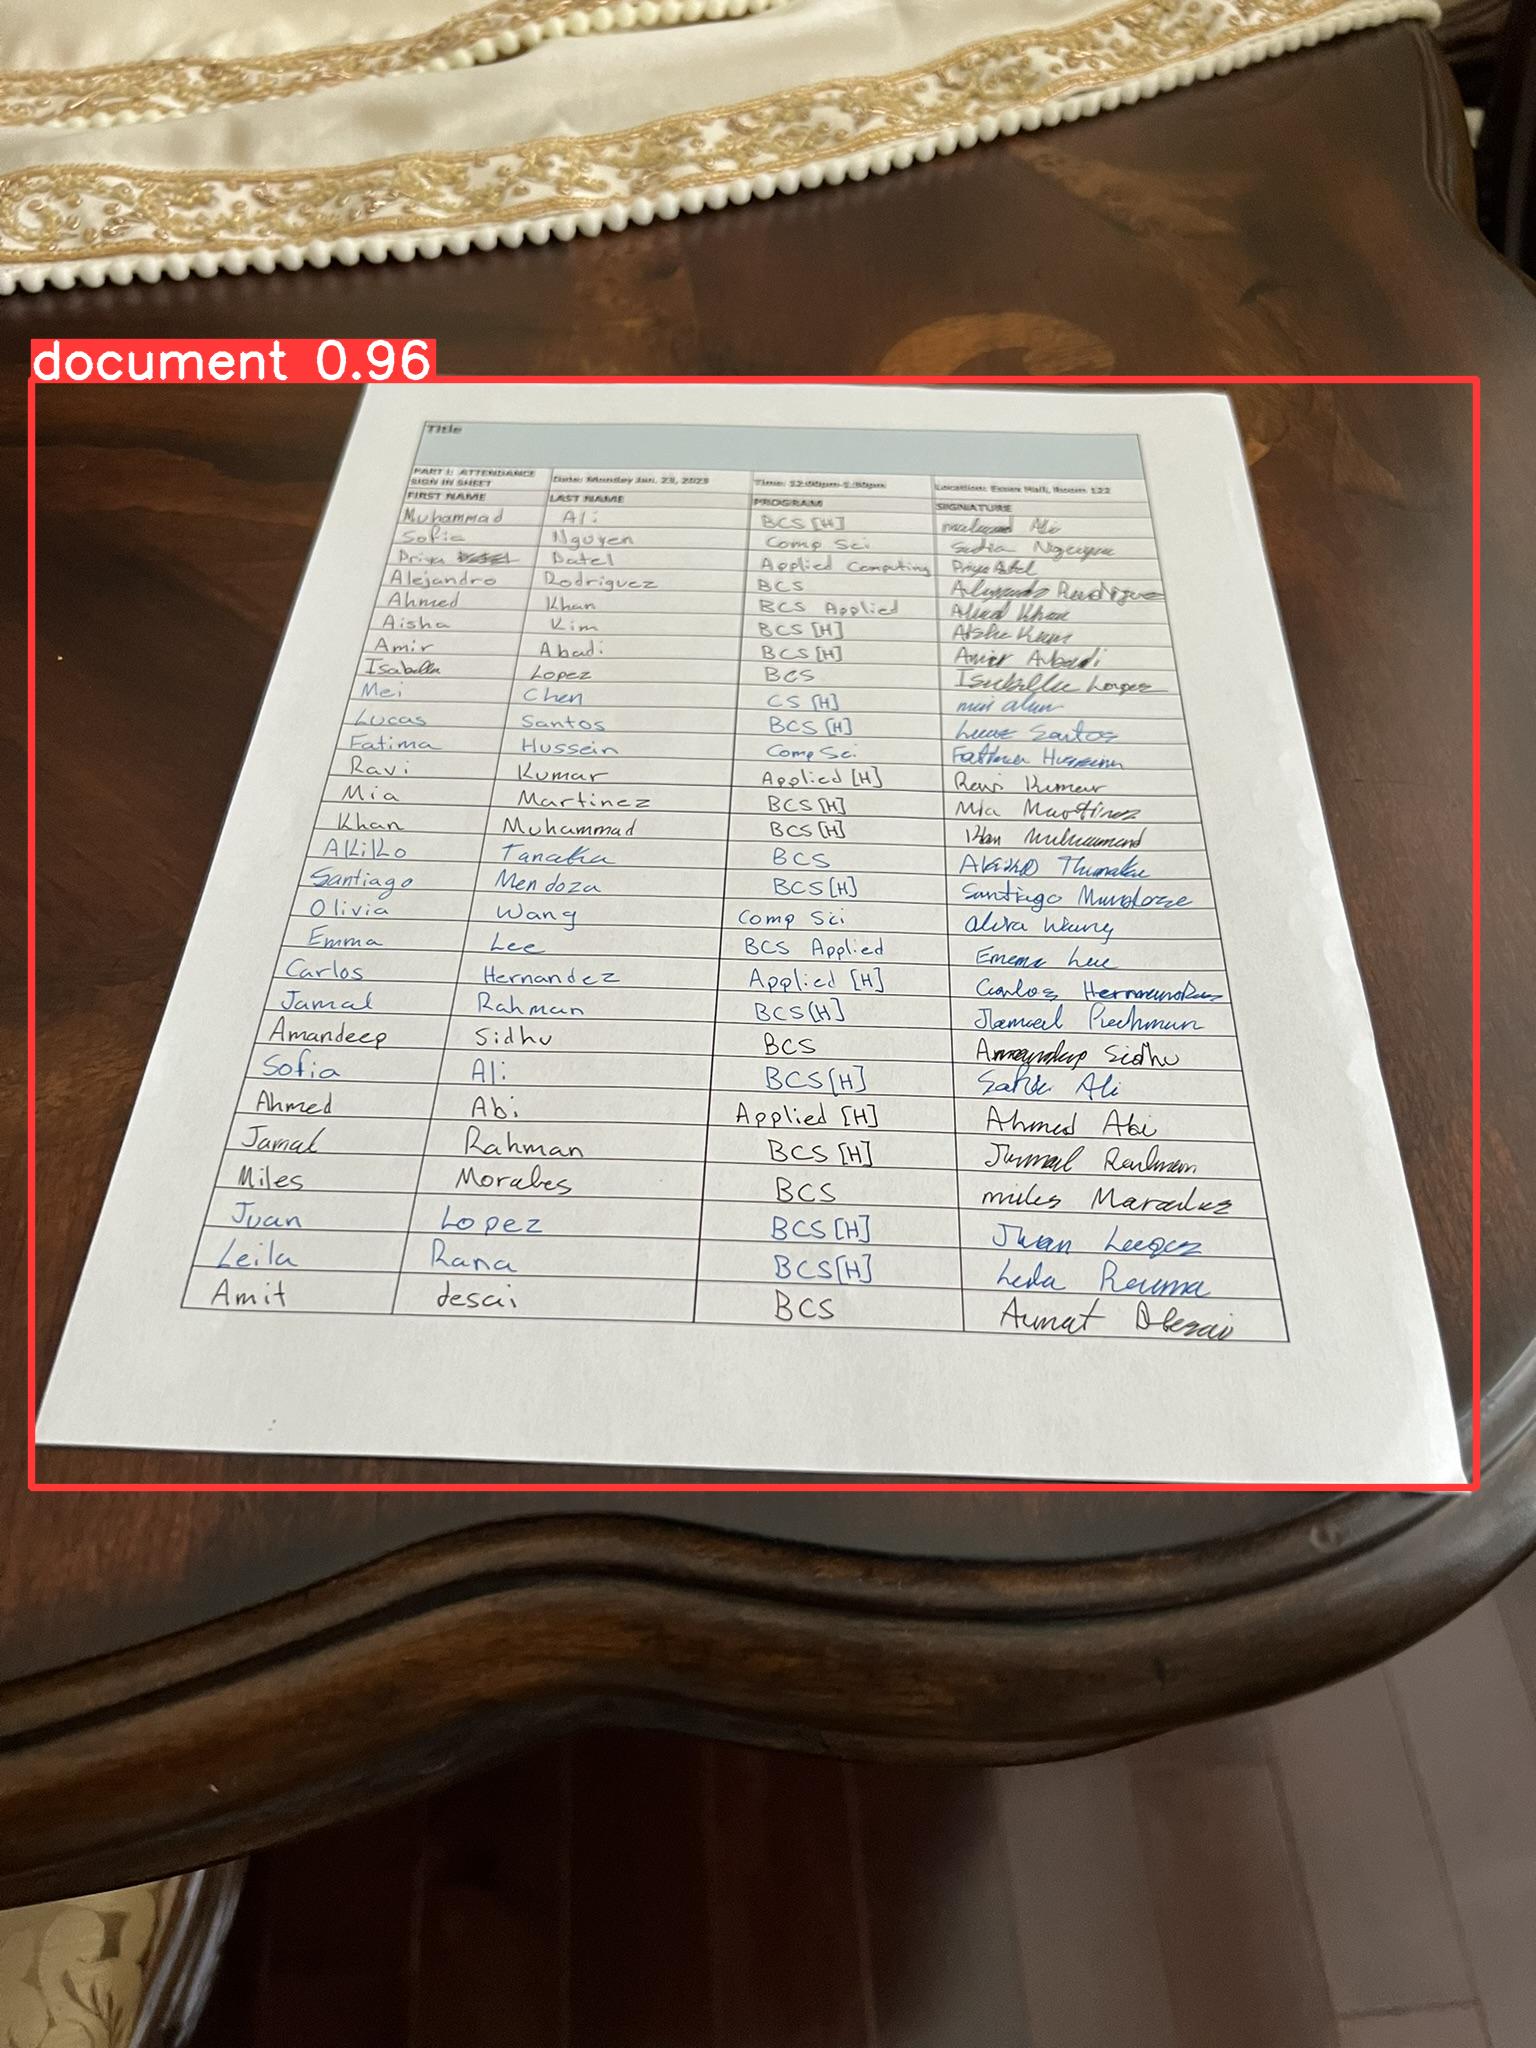 document 0.96
Title
PART I: ATTENDANCE SIGN IN SHEET Date: Monday Jan. 23, 2023 Time: 12:00pm-1:30pm Location: Essex Hall, Room 122
FIRST NAME LAST NAME PROGRAM SIGNATURE
Muhammad Ali BCS [H] Ali
Sofia Nguyen Comp Sci Sofia Nguyen
Priya Patel Applied Computing Priya Patel
Alejandro Rodriguez BCS Alejandro Rodriguez
Ahmed Khan BCS Applied Ahmed Khan
Aisha Kim BCS [H] Aisha Kim
Amir Abadi BCS [H] Amir Abadi
Isabella Lopez BCS Isabella Lopez
Mei Chen CS [H] mei chen
Lucas Santos BCS [H] Lucas Santos
Fatima Hussein Comp Sci Fatima Hussein
Ravi Kumar Applied [H] Ravi Kumar
Mia Martinez BCS [H] Mia Martinez
Khan Muhammad BCS [H] Khan Muhammad
Akiko Tanaka BCS Akiko Tanaka
Santiago Mendoza BCS [H] Santiago Mendoza
Olivia Wang Comp Sci Olivia Wang
Emma Lee BCS Applied Emma Lee
Carlos Hernandez Applied [H] Carlos Hernandez
Jamal Rahman BCS [H] Jamal Rahman
Amandeep Sidhu BCS Amandeep Sidhu
Sofia Ali BCS [H] Sofia Ali
Ahmed Abi Applied [H] Ahmed Abi
Jamal Rahman BCS [H] Jamal Rahman
Miles Morales BCS miles Morales
Juan Lopez BCS [H] Juan Lopez
Leila Rana BCS [H] Leila Rana
Amit desai BCS Amit Desai